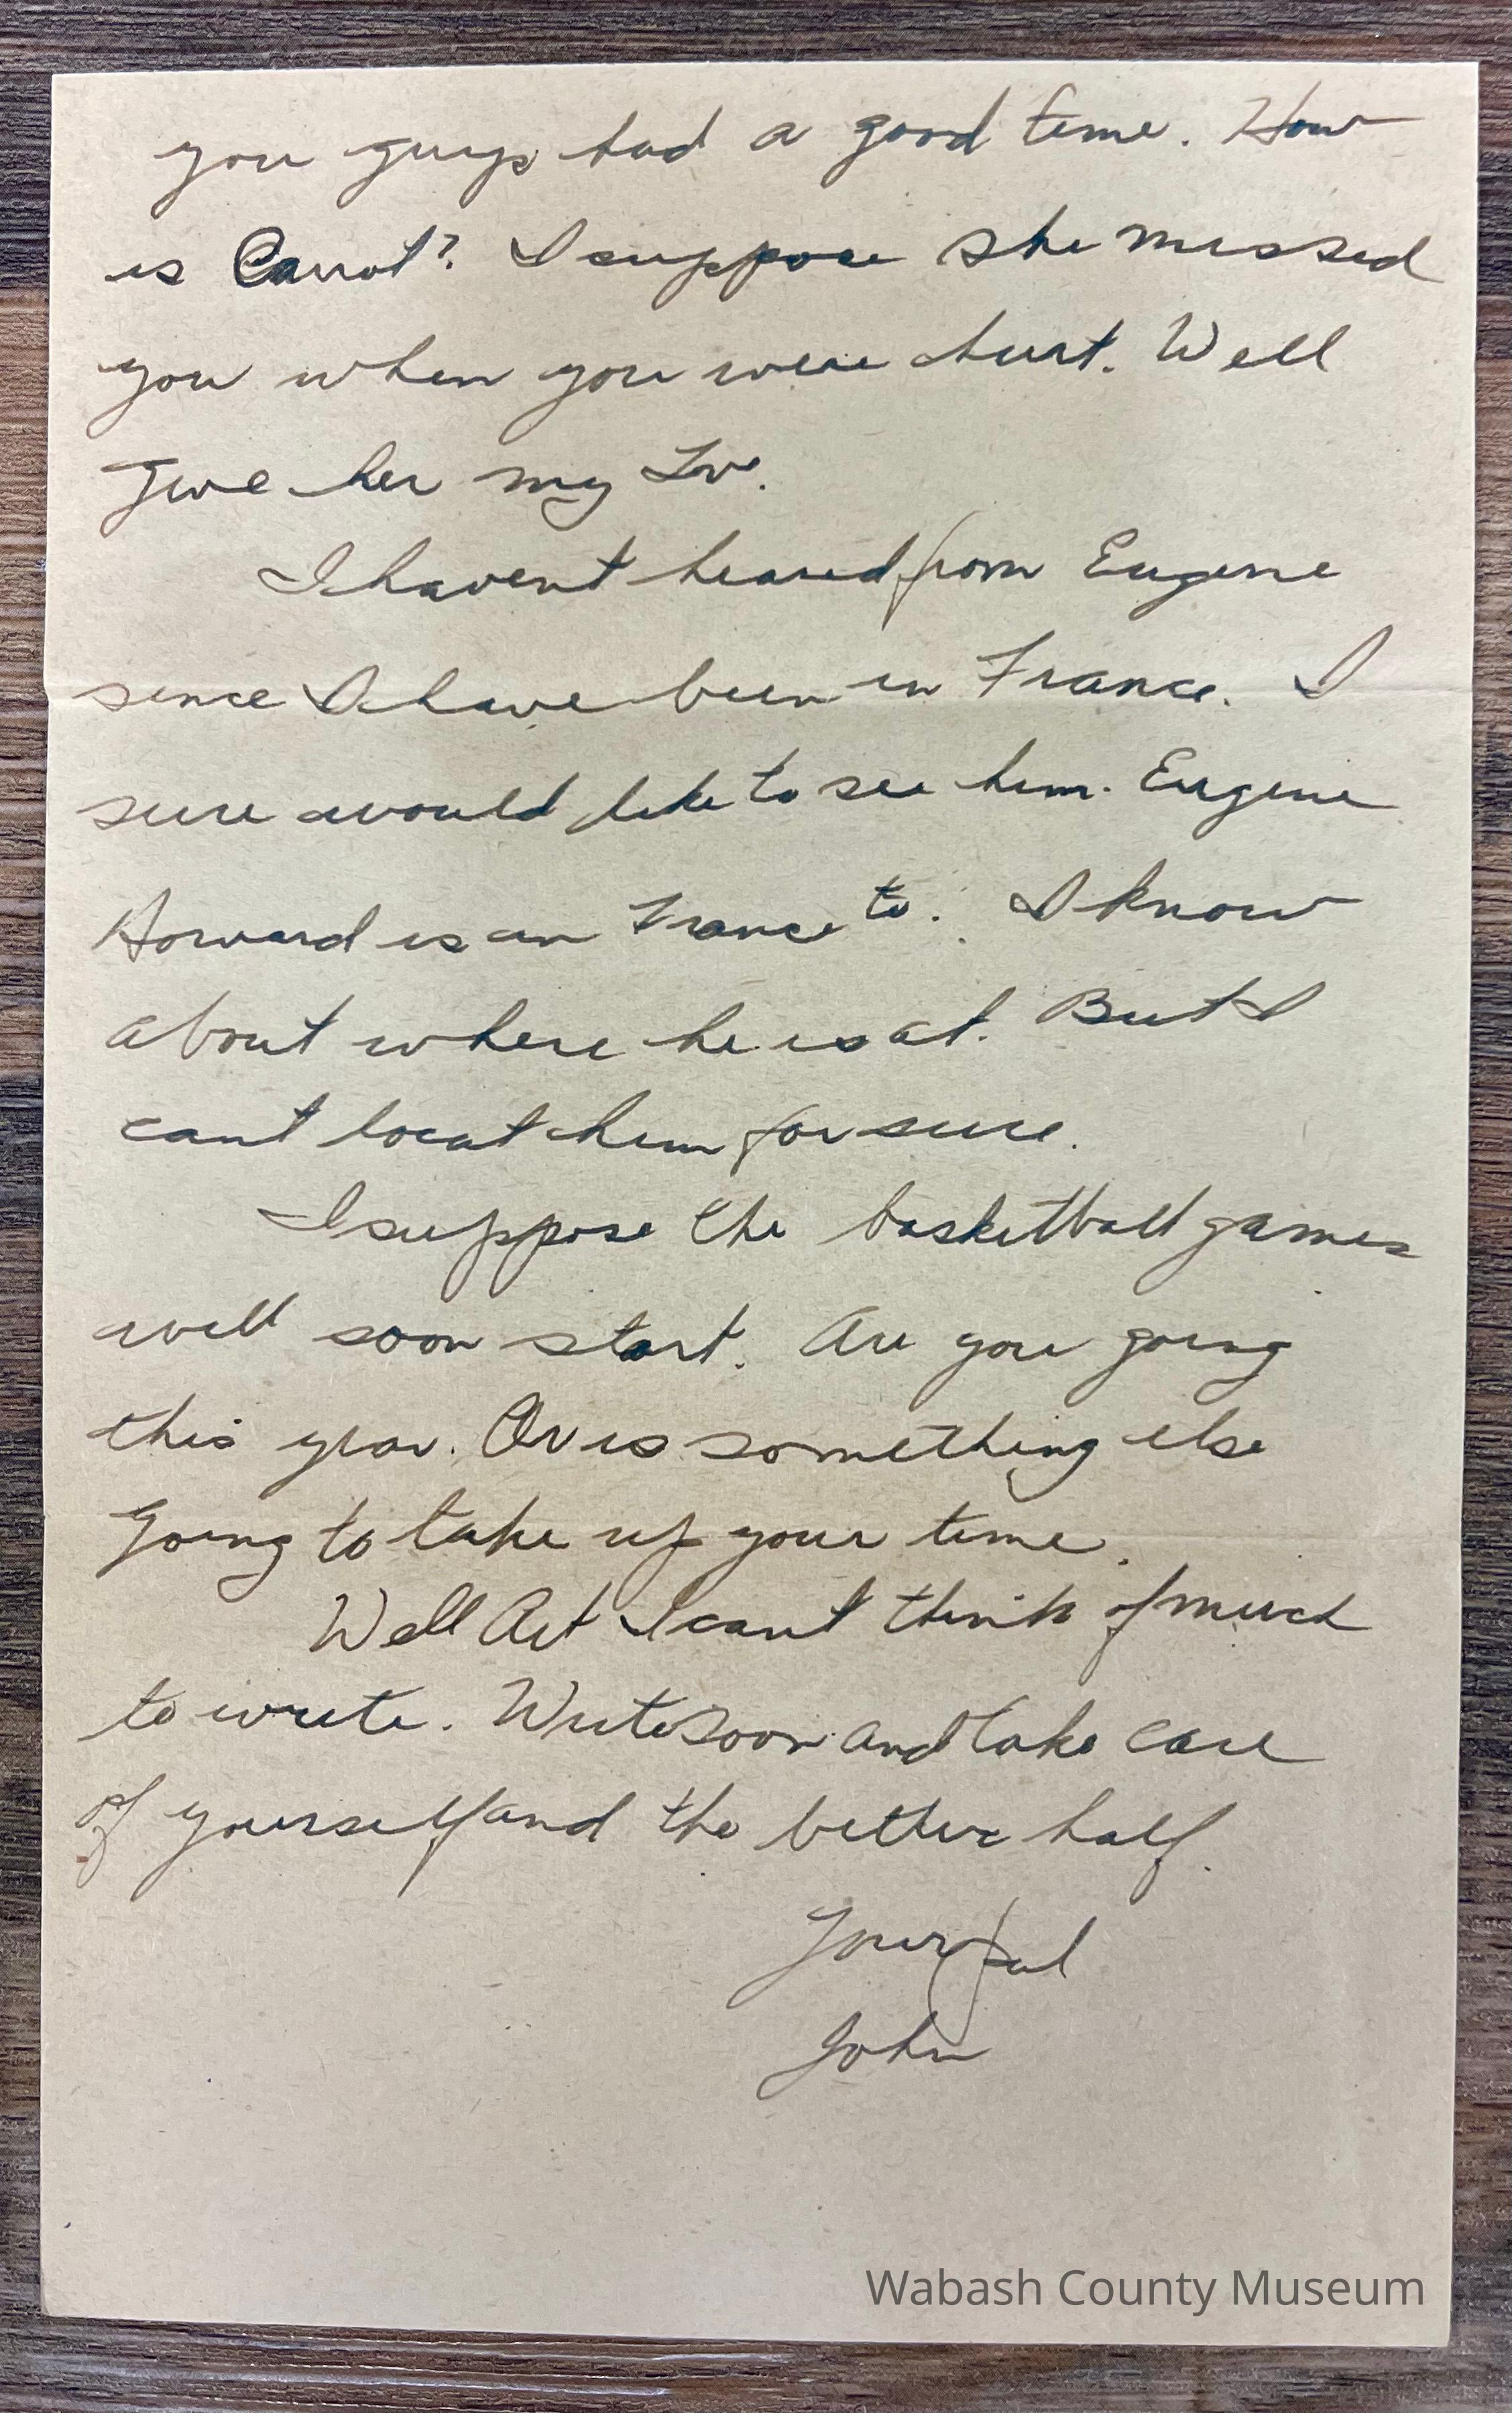 you guys had a good time. How
is Carrot? I suppose she missed
you when you were hurt. Well
give her my Love.
I havent heared from Eugene
since I have been in France. I
sure would like to see him. Eugene
Howard is in France to. I know
about where he is at. But I
cant locat him for sure.
I suppose the basketball games
will soon start. Are you going
this year. Or is something else
going to take up your time.
Well Art I cant think of much
to write. Write soon and take care
of yourself and the better half.
Your pal
John
Wabash County Museum